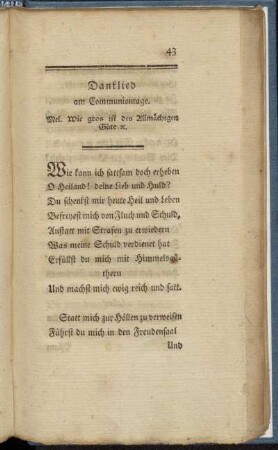 43
Danklied
am Communiontage.
Mel. Wie gros ist des Allmächtgen
Güte ꝛc.
Wie kann ich sattsam doch erheben
O Heiland! deine Lieb und Huld?
Du schenkst mir heute Heil und Leben
Befreyest mich von Fluch und Schuld,
Anstatt mit Strafen zu erwiedern
Was meine Schuld verdienet hat
Erfüllst du mich mit Himmelsgü-
thern
Und machst mich ewig reich und satt.
Statt mich zur Höllen zu verweisen
Führst du mich in den Freudensaal
Und